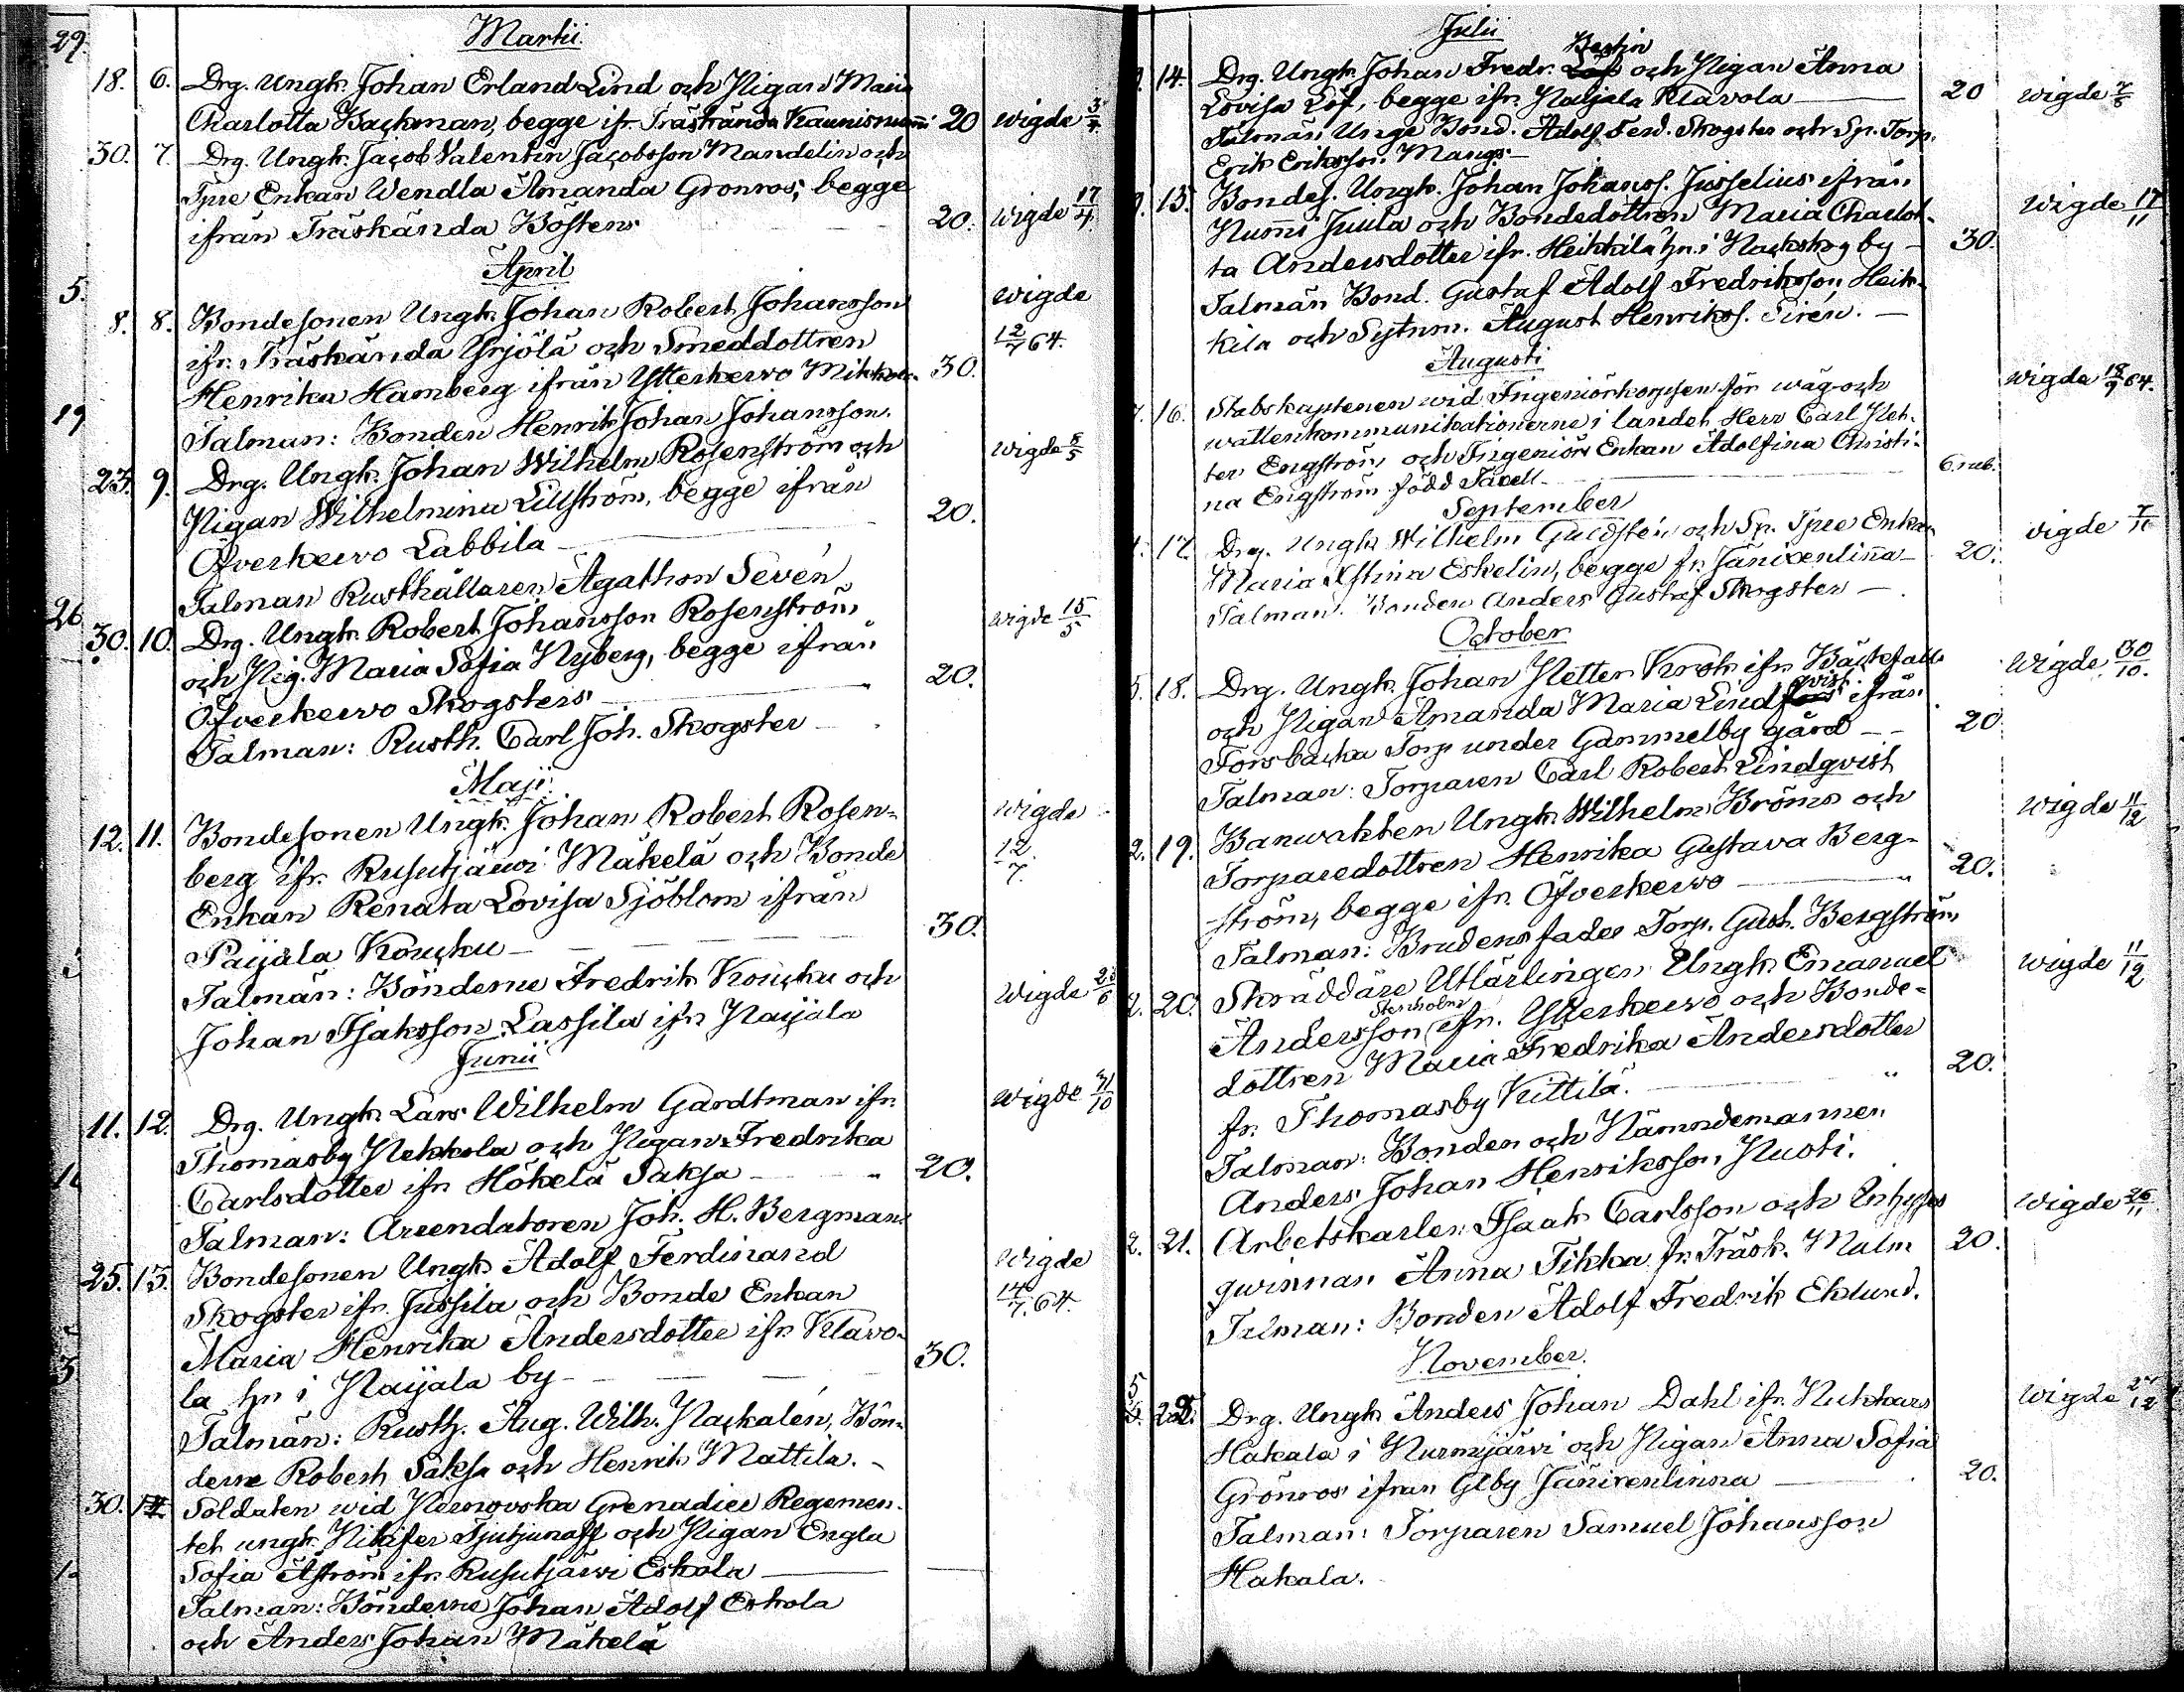 29.
Martii.
18. 6. Drg. Ungk. Johan Erland Lind och Pigan Maria
Charlotta Backman, begge ifr. Träskända Kaunisnummi 20 wigde 3/4.
30. 7. Drg. Ungk. Jacob Valentin Jacobsson Mandelin och
Tpre Enkan Wendla Amanda Grönroos, begge
ifrån Träskända Böstens 20. wigde 17/4.
April
5.
8. 8. Bondesonen Ungk. Johan Robert Johansson wigde
ifr. Träskända Yrjölä och Smeddottren 12/7 64.
Henrika Hamberg ifrån Ytterkervo Mikkola 30.
Talman: Bonden Henrik Johan Johansson.
19
23. 9. Drg. Ungk. Johan Wilhelm Rosenström och wigde 8/5
Pigan Wilhelmina Lillström, begge ifrån
Öfverkervo Labbila 20.
Talman Rusthållaren Agathon Sevén
26
30. 10. Drg. Ungk. Robert Johansson Rosenström wigde 15/5
och Pig. Maria Sofia Nyberg, begge ifrån
Öfverkervo Skogsters 20.
Talman: Rusth. Carl Joh. Skogster
Maji.
12. 11. Bondesonen Ungk. Johan Robert Rosen- wigde
berg ifr. Rusutjärvi Mäkelä och Bonde 12/7.
Enkan Renata Lovisa Sjöblom ifrån
Paijala Koucku 30.
Talmän: Bönderne Fredrik Koucku och
Johan Isaksson Lassila ifr. Paijala wigde 23/6
Junii
11. 12. Drg. Ungk. Lars Wilhelm Gardtman ifr. wigde 31/10
Thomasby Pekkola och Pigan Fredrika
Carlsdotter ifr. Hökelä Saksa 20.
Talman: Arrendatoren Joh. H. Bergman.
25. 13. Bondesonen Ungk. Adolf Ferdinand wigde
Skogster ifr. Jussila och Bonde Enkan 14/7 64.
Maria Henrika Andersdotter ifr. Klavo-
la hn i Paijala by 30.
Talmän: Rusth. Aug. Wilh. Packalén, Bön-
derne Robert Saksa och Henrik Mattila.
30. 14. Soldaten wid Pernovska Grenadier Regemen-
tet ungk. Nikifer Tjutjunaff och Pigan Engla
Sofia Åström ifr. Rusutjärvi Eskola
Talmän: Bönderne Johan Adolf Eskola
och Anders Johan Mäkelä
Julii
Bastin
14. Drg. Ungk. Johan Fredr. Löf och Pigan Anna
Lovisa Löf, begge ifr. Paijala Klavola 20 wigde 7/8
Talmän Unge Bond. Adolf Ferd. Skogster och Sp. Torp.
Erik Eriksson Mangs
15. Bondes. Ungk. Johan Johanss. Jusselius ifrån
Nummi Juula och Bondedottren Maria Charlot- wigde 17/11
ta Andersdotter ifr. Heikkilä hn. i Nackskog by 30.
Talmän Bond. Gustaf Adolf Fredriksson Heik-
kilä och Sytnm. August Henrikss. Sirén.
Augusti
16. Stabskaptenen wid Ingeniörkorpsen för wäg- och wigde 18/9 64.
wattenkommunikationerne i landet Herr Carl Pet-
ter Engström och Ingeniörs Enkan Adolfina Christi-
na Engström född Tavell 6 rub.
September
17. Drg. Ungk. Wilhelm Guldstén och Sp. Tpre Enkan wigde 7/10
Maria Kstina Eskelin, begge fr. Jänixenlinna 20.
Talman. Bonden Anders Gustaf Skogster
October
18. Drg. Ungk. Johan Petter Krok ifr. Bäckefalls wigde 30/10.
qvist
och Pigan Amanda Maria Lindfors ifrån
Forsbacka Torp under Gammelby gård 20
Talman: Torparen Carl Robert Lindqvist
2. 19. Banwakten Ungk. Wilhelm Broms och wigde 11/12
Torparedottren Henrika Gustava Berg-
ström, begge ifr. Öfverkervo 20.
Talman: Brudens fader Torp. Gust. Bergström
2. 20. Skräddare Utlärlingen Ungk. Emanuel wigde 11/12
Stenholm
Andersson ifr. Ytterkervo och Bonde-
dottren Maria Fredrika Andersdotter
fr. Thomasby Kittilä. 20.
Talman: Bonden och Nämndemannen
Anders Johan Henriksson Nusti.
2. 21. Arbetskarlen Isaak Carlsson och Inhyses wigde 26/11
qwinnan Anna Tikka fr. Träsk. Malm 20.
Talman: Bonden Adolf Fredrik Eklund.
November.
5 22. Drg. Ungk. Anders Johan Dahl ifr. Nukkars wigde
Hakala i Nurmijärvi och Pigan Anna Sofia
Grönroos ifrån Glby Jänixenlinna 20.
Talman: Torparen Samuel Johansson
Hakala.